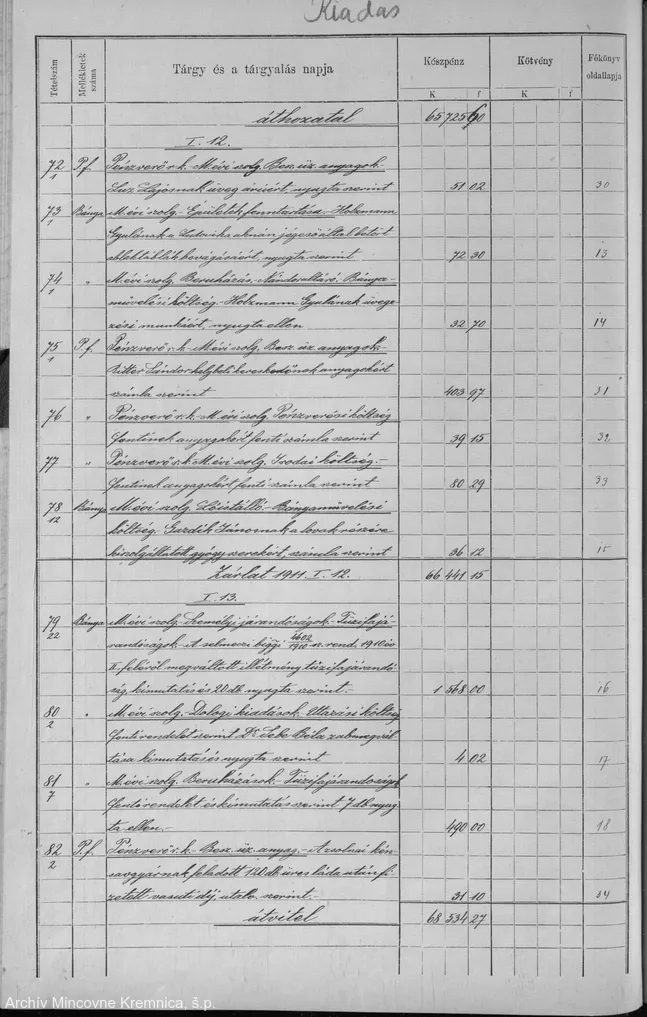 Kiadás
Tételszám
Mellékletek száma
Tárgy és a tárgyalás napja
Készpénz
Kötvény
Főkönyv oldallapja
K f K f
áthozatal 65725 60
I. 12.
72/1 P.f. Pénzverő r.k. M. évi szolg. Besz. üz. anyagok.
Lajosnak üveg árúért, nyugta szerint 51 02 30
73/1 Bánya M. évi szolg. Épületek fenntartása. Holzmann
Gyulának a Ludovika aknán jégeső által betört
ablaktáblák bevágásáért, nyugta szerint 72 30 13
74/1 " M. évi szolg. Beruházás. Nándor altáró. Bánya-
művelési költség. Holzmann Gyulának üvege-
zési munkáért, nyugta ellen 32 70 14
75/1 P.f. Pénzverő r.k. M. évi szolg. Besz. üz. anyagok.
Ritter Sándor helybeli kereskedőnek anyagokért
számla szerint 403 97 31
76 " Pénzverő r.k. M. évi szolg. Pénzverési költség
Fentinek anyagokért fenti számla szerint 39 15 32
77 " Pénzverő r.k. M. évi szolg. Irodai költség.-
Fentinek anyagokért, fenti számla szerint 80 29 33
78/12 Bánya M. évi szolg. Lóistálló.- Bányaművelési
költség. Gazdik Jánosnak a lovak részére
kiszolgáltatott gyógyszerekért, számla szerint 36 12 15
Zárlat 1911. I. 12. 66 441 15
I. 13.
79/22 Bánya M. évi szolg. Személyi járandóságok. Tűzifajá-
randóságok. A selmeczi 1910 sz. rend. 1910 év
II. feléről megváltott illetmény tűzifajárandó-
ság, kimutatás és 20 db. nyugta szerint.- 1 568 00 16
80/2 " M. évi szolg.- Dologi kiadások. Utazási költség
Fenti rendelet szerint Dr. Béla zabmegvál-
tása kimutatás és nyugta szerint 4 02 17
81/7 " M. évi szolg. Beruházások.- Tűzifajárandóságok
Fenti rendelet és kimutatás szerint 7 db nyug-
ta ellen.- 490 00 18
82/2 P.f. Pénzverő r.k.- Besz. üz. anyag.- A zsolnai kén-
savgyárnak feladott 120 db. üres láda után fi-
zetett vasuti díj, utalv. szerint.- 31 10 34
átvitel 68 534 27
Archív Mincovne Kremnica, š.p.